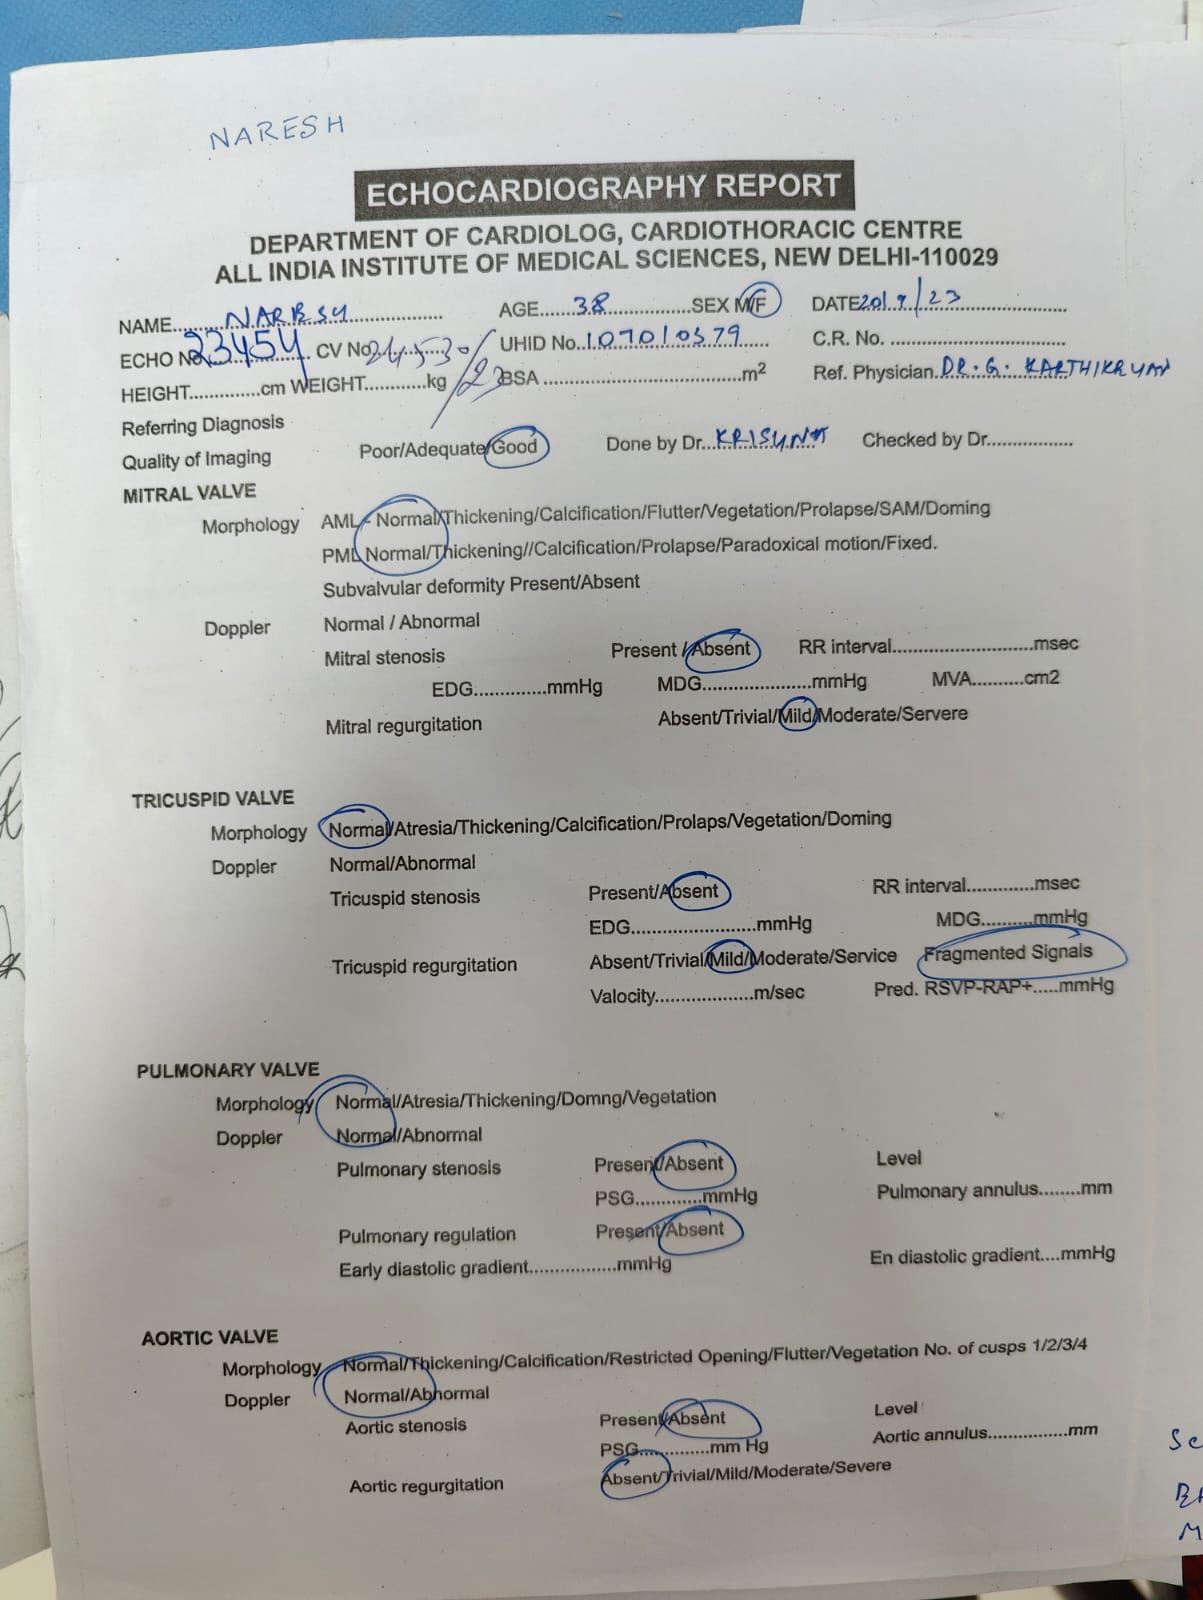 NARESH
ECHOCARDIOGRAPHY REPORT
DEPARTMENT OF CARDIOLOG, CARDIOTHORACIC CENTRE
ALL INDIA INSTITUTE OF MEDICAL SCIENCES, NEW DELHI-110029
NAME......... NARESH .................. AGE.....38..................SEX M/F DATE 20/9/23
ECHO No 23454 CV No 24530/23 UHID No. 107010379 C.R. No. ..............................
HEIGHT..............cm WEIGHT............kg BSA ....................................m2 Ref. Physician. DR. G. KARTHIKEYAN
Referring Diagnosis
Quality of Imaging Poor/Adequate/Good Done by Dr... KRISHNA Checked by Dr.................
MITRAL VALVE
Morphology AML - Normal/Thickening/Calcification/Flutter/Vegetation/Prolapse/SAM/Doming
PML Normal/Thickening//Calcification/Prolapse/Paradoxical motion/Fixed.
Subvalvular deformity Present/Absent
Doppler Normal / Abnormal
Mitral stenosis Present / Absent RR interval...........................msec
EDG..............mmHg MDG.....................mmHg MVA..........cm2
Mitral regurgitation Absent/Trivial/Mild/Moderate/Servere
TRICUSPID VALVE
Morphology Normal/Atresia/Thickening/Calcification/Prolaps/Vegetation/Doming
Doppler Normal/Abnormal
Tricuspid stenosis Present/Absent RR interval.............msec
EDG........................mmHg MDG..........mmHg
Tricuspid regurgitation Absent/Trivial/Mild/Moderate/Service Fragmented Signals
Valocity...................m/sec Pred. RSVP-RAP+.....mmHg
PULMONARY VALVE
Morphology Normal/Atresia/Thickening/Domng/Vegetation
Doppler Normal/Abnormal
Pulmonary stenosis Present/Absent Level
PSG.............mmHg Pulmonary annulus........mm
Pulmonary regulation Present/Absent
Early diastolic gradient.................mmHg En diastolic gradient....mmHg
AORTIC VALVE
Morphology Normal/Thickening/Calcification/Restricted Opening/Flutter/Vegetation No. of cusps 1/2/3/4
Doppler Normal/Abnormal
Aortic stenosis Present/Absent Level
PSG..............mm Hg Aortic annulus................mm
Aortic regurgitation Absent/Trivial/Mild/Moderate/Severe